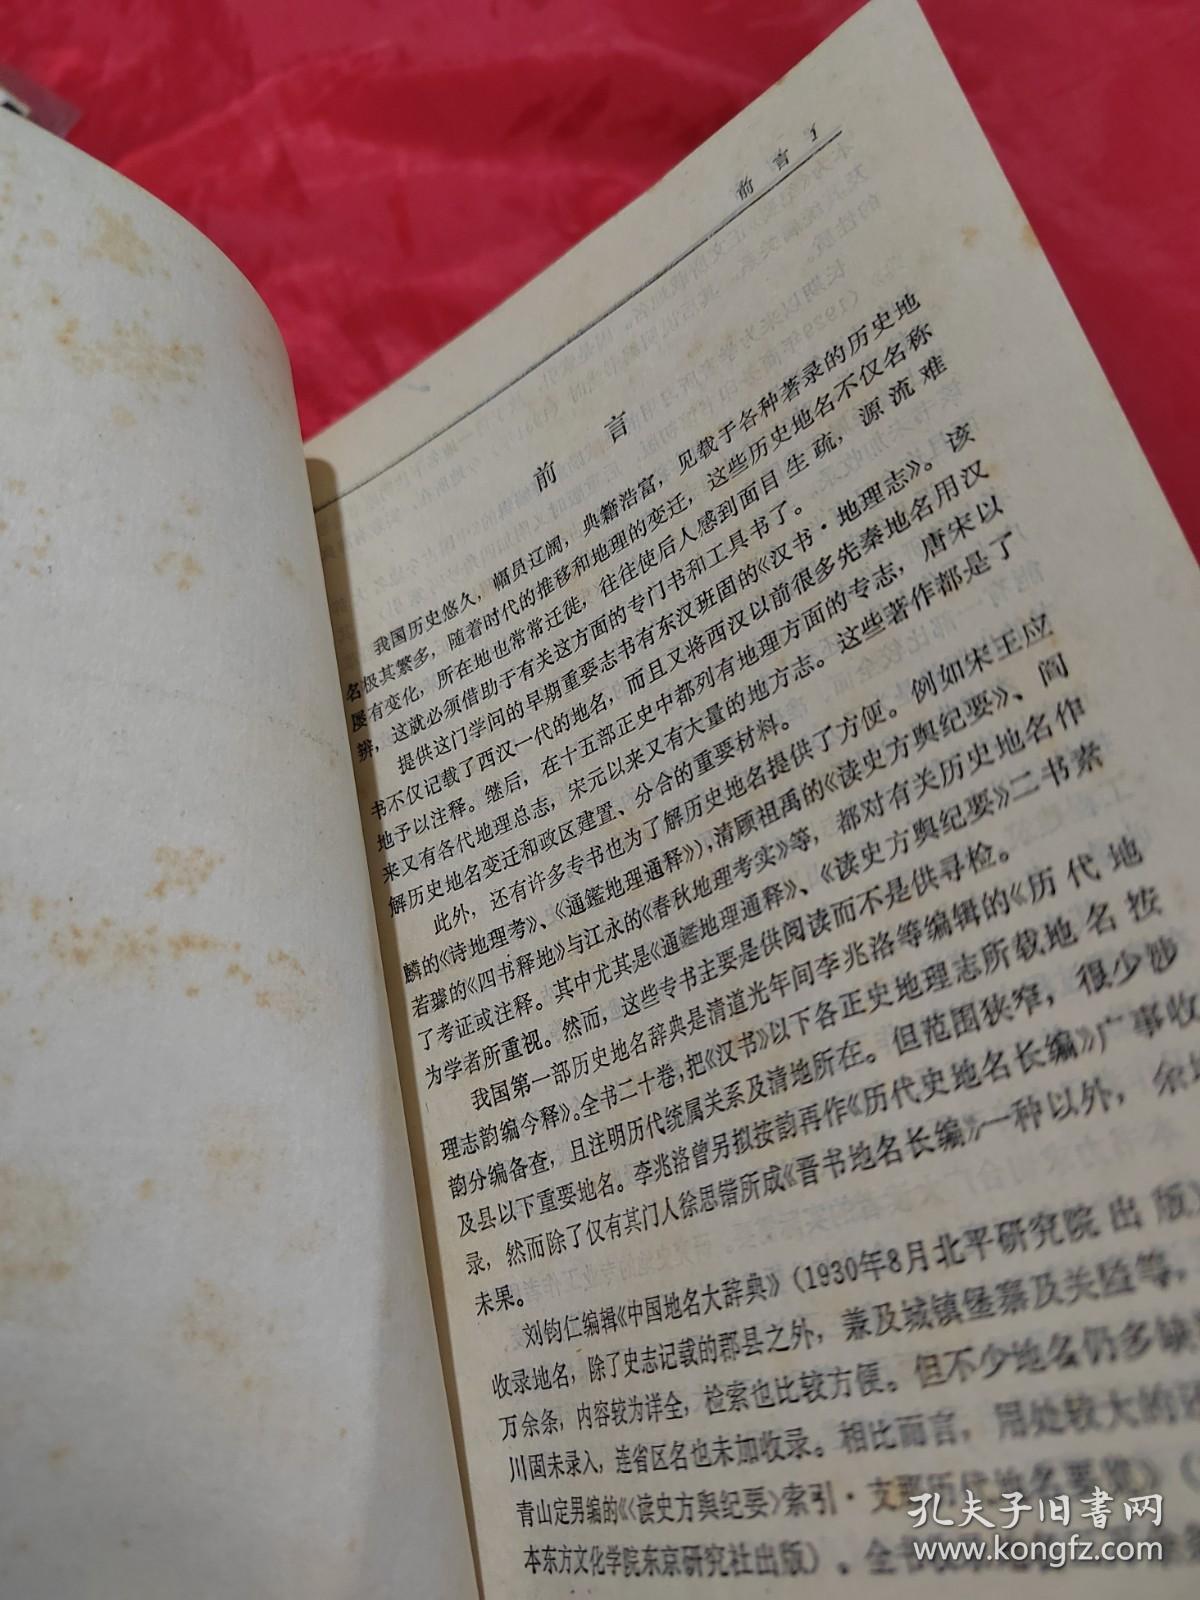 前言 1
前言
我国历史悠久，幅员辽阔，典籍浩富，见载于各种著录的历史地
名极其繁多，随着时代的推移和地理的变迁，这些历史地名不仅名称
屡有变化，所在地也常常迁徙，往往使后人感到面目生疏，源流难
辨，这就必须借助于有关这方面的专门书和工具书了。
提供这门学问的早期重要志书有东汉班固的《汉书·地理志》。该
书不仅记载了西汉一代的地名，而且又将西汉以前很多先秦地名用汉
地予以注释。继后，在十五部正史中都列有地理方面的专志，唐宋以
来又有各代地理总志，宋元以来又有大量的地方志。这些著作都是了
解历史地名变迁和政区建置、分合的重要材料。
此外，还有许多专书也为了解历史地名提供了方便。例如宋王应
麟的《诗地理考》、《通鑑地理通释》），清顾祖禹的《读史方舆纪要》、阎
若璩的《四书释地》与江永的《春秋地理考实》等，都对有关历史地名作
了考证或注释。其中尤其是《通鑑地理通释》、《读史方舆纪要》二书素
为学者所重视。然而，这些专书主要是供阅读而不是供寻检。
我国第一部历史地名辞典是清道光年间李兆洛等编辑的《历代地
理志韵编今释》。全书二十卷，把《汉书》以下各正史地理志所载地名按
韵分编备查，且注明历代统属关系及清地所在。但范围狭窄，很少涉
及县以下重要地名。李兆洛曾另拟按韵再作《历代史地名长编》广事收
录，然而除了仅有其门人徐思锴所成《晋书地名长编》一种以外，余均
未果。
刘钧仁编辑《中国地名大辞典》（1930年8月北平研究院出版）
收录地名，除了史志记载的郡县之外，兼及城镇堡寨及关隘等，
万余条，内容较为详全，检索也比较方便。但不少地名仍多缺
川固未录入，连省区名也未加收录。相比而言，用处较大的还
青山定男编的《〈读史方舆纪要〉索引·支那历代地名要览》（
本东方文化学院东京研究社出版）。全书收录地名
孔夫子旧书网
www.kongfz.com